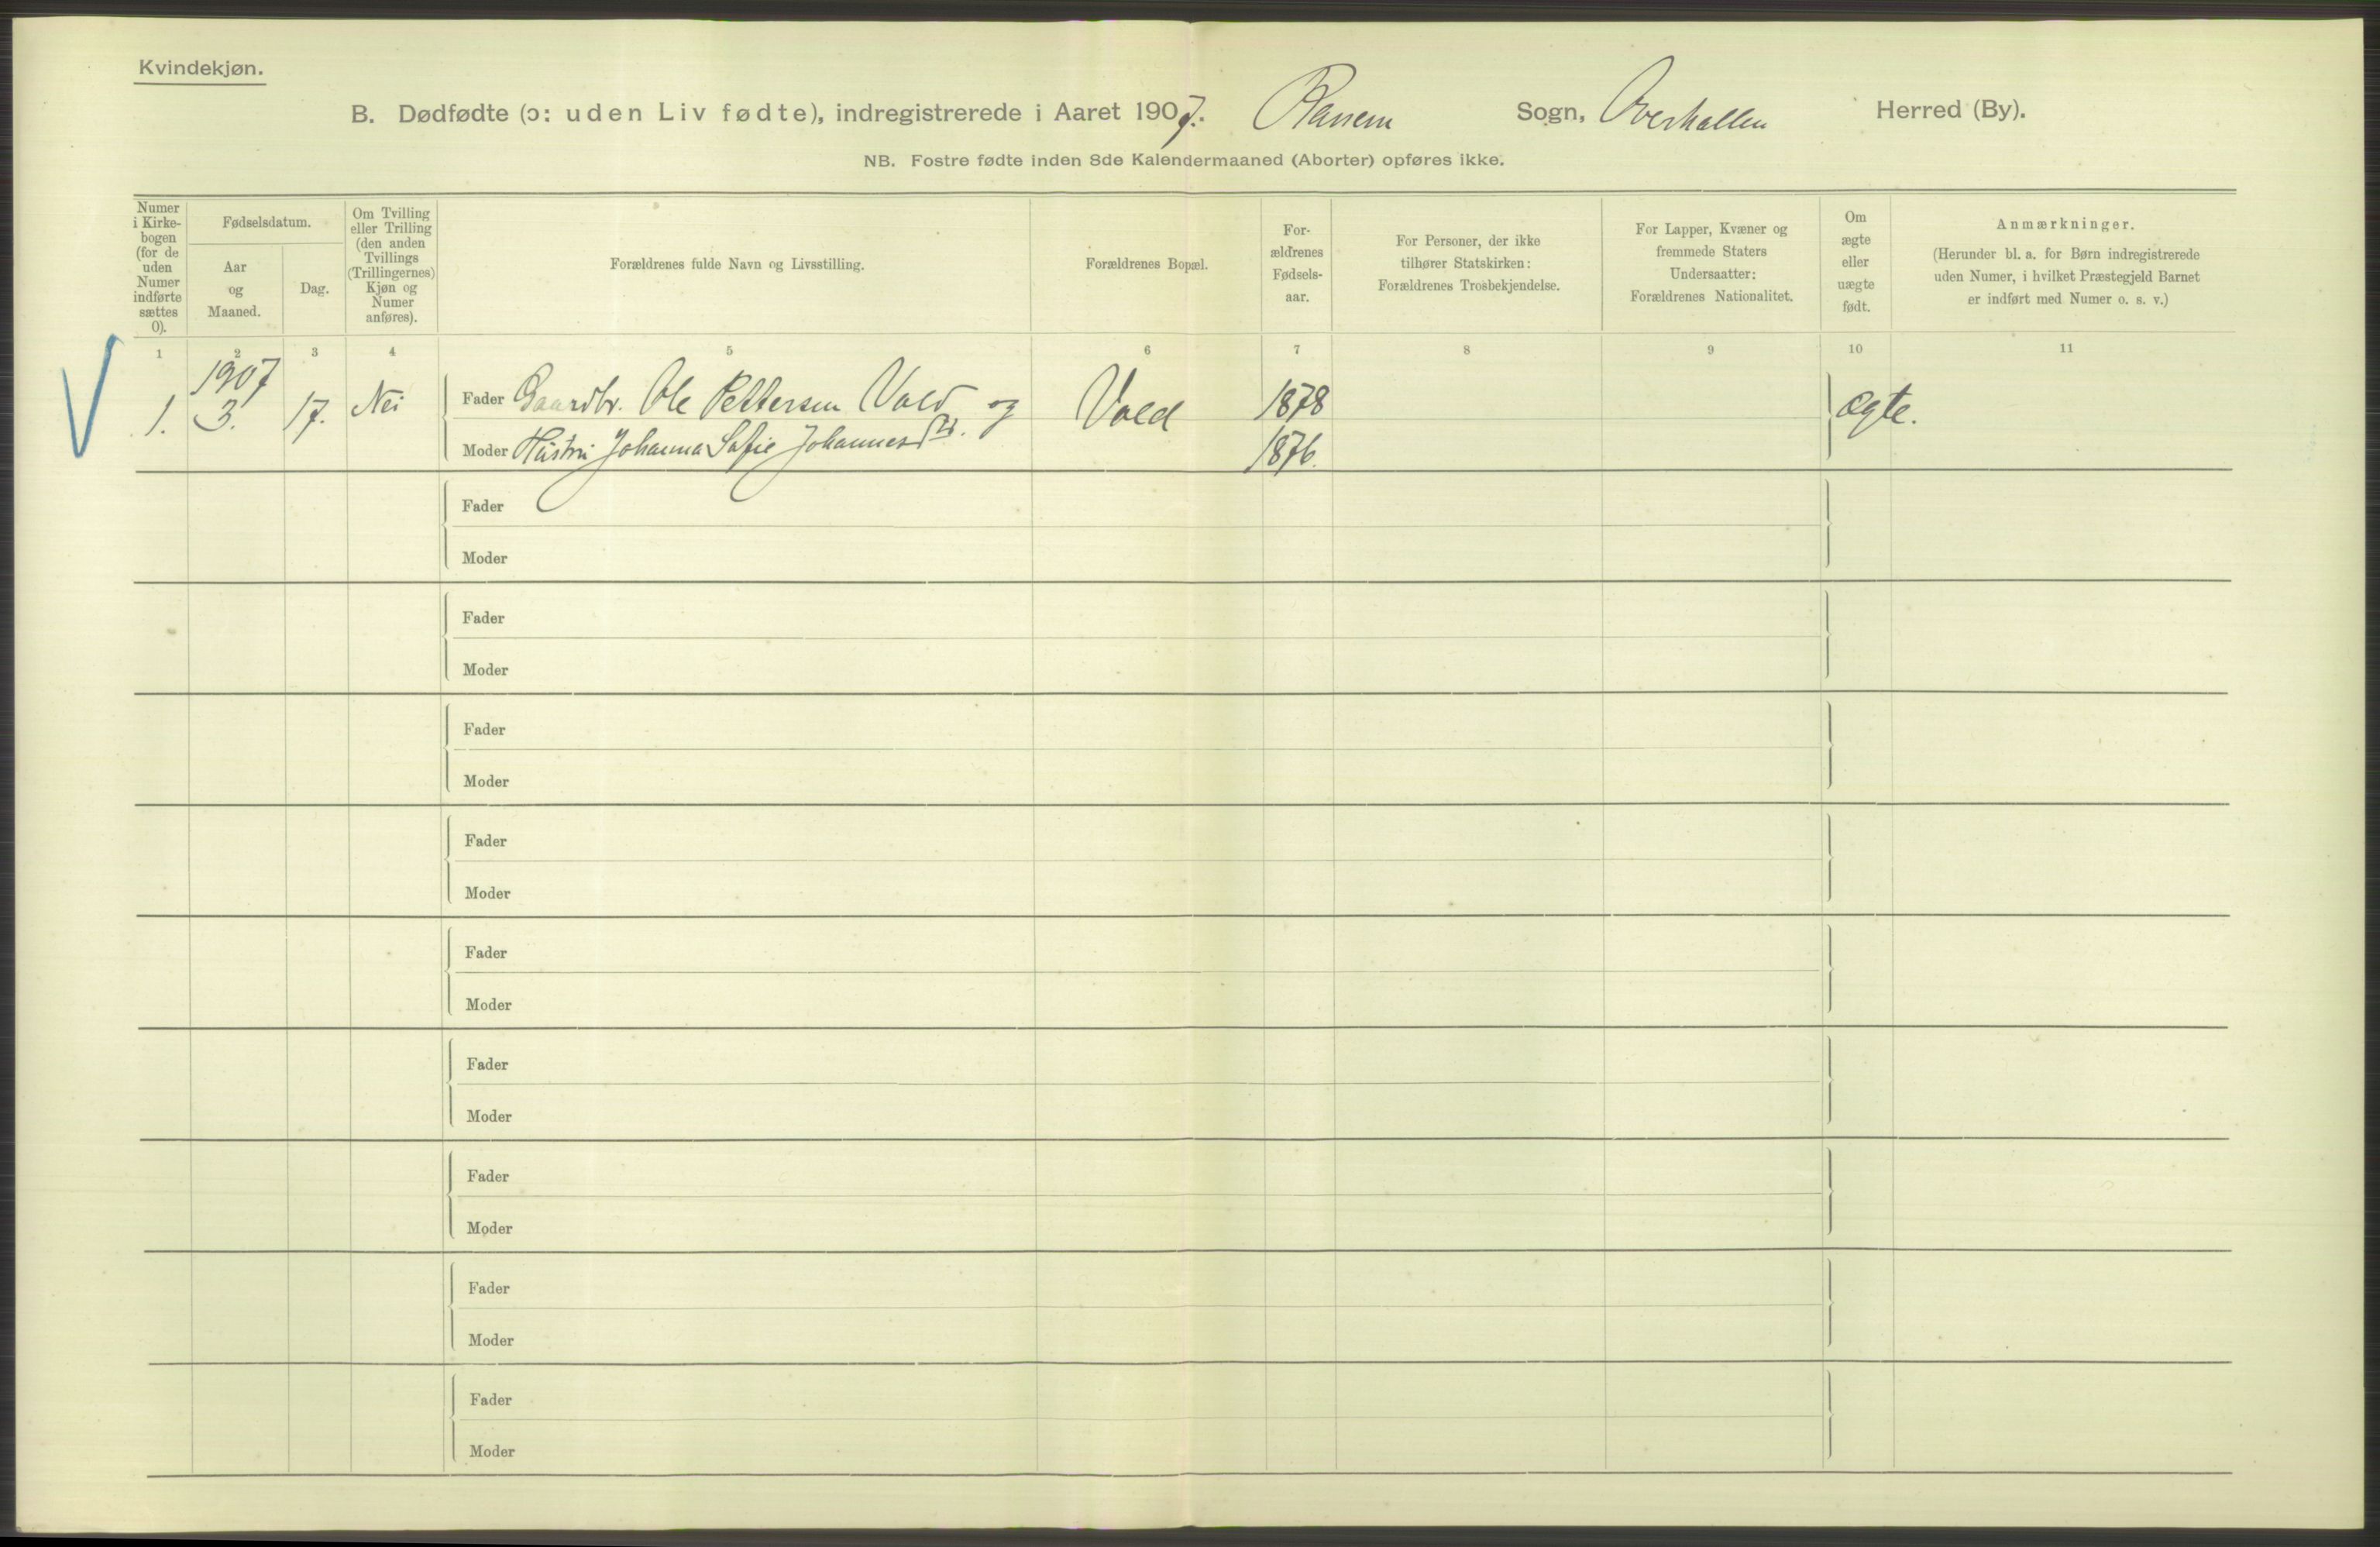 Kvindekjøn.
B. Dødfødte (ɔ: uden Liv fødte), indregistrerede i Aaret 1907. Ranem Sogn, Overhallen Herred (By).
NB. Fostre fødte inden 8de Kalendermaaned (Aborter) opføres ikke.
Numer
i Kirke-
bogen
(for de
uden
Numer
indførte
sættes
0).
Fødselsdatum.
Aar
og
Maaned.
Dag.
Om Tvilling
eller Trilling
(den anden
Tvillings
(Trillingernes)
Kjøn og
Numer
anføres).
Forældrenes fulde Navn og Livsstilling.
Forældrenes Bopæl.
For-
ældrenes
Fødsels-
aar.
For Personer, der ikke
tilhører Statskirken:
Forældrenes Trosbekjendelse.
For Lapper, Kvæner og
fremmede Staters
Undersaatter:
Forældrenes Nationalitet.
Om
ægte
eller
uægte
født.
Anmærkninger.
(Herunder bl. a. for Børn indregistrerede
uden Numer, i hvilket Præstegjeld Barnet
er indført med Numer o. s. v.)
1 2 3 4 5 6 7 8 9 10 11
1907
1. 3. 17. Nei Fader Gaardbr. Ole Pettersen Vold og Vold 1878 ægte.
Moder Hustru Johanna Sofie Johannesdtr. 1876.
Fader
Moder
Fader
Moder
Fader
Moder
Fader
Moder
Fader
Moder
Fader
Moder
Fader
Moder
Fader
Moder
Fader
Moder